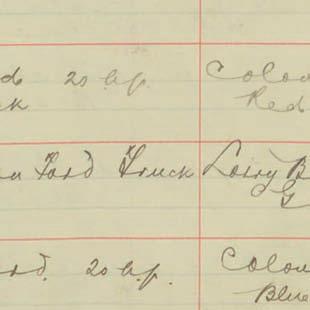 20 h.p. Colou
Red
Ford Truck Lorry B
G
20 h.p. Colou
Blue